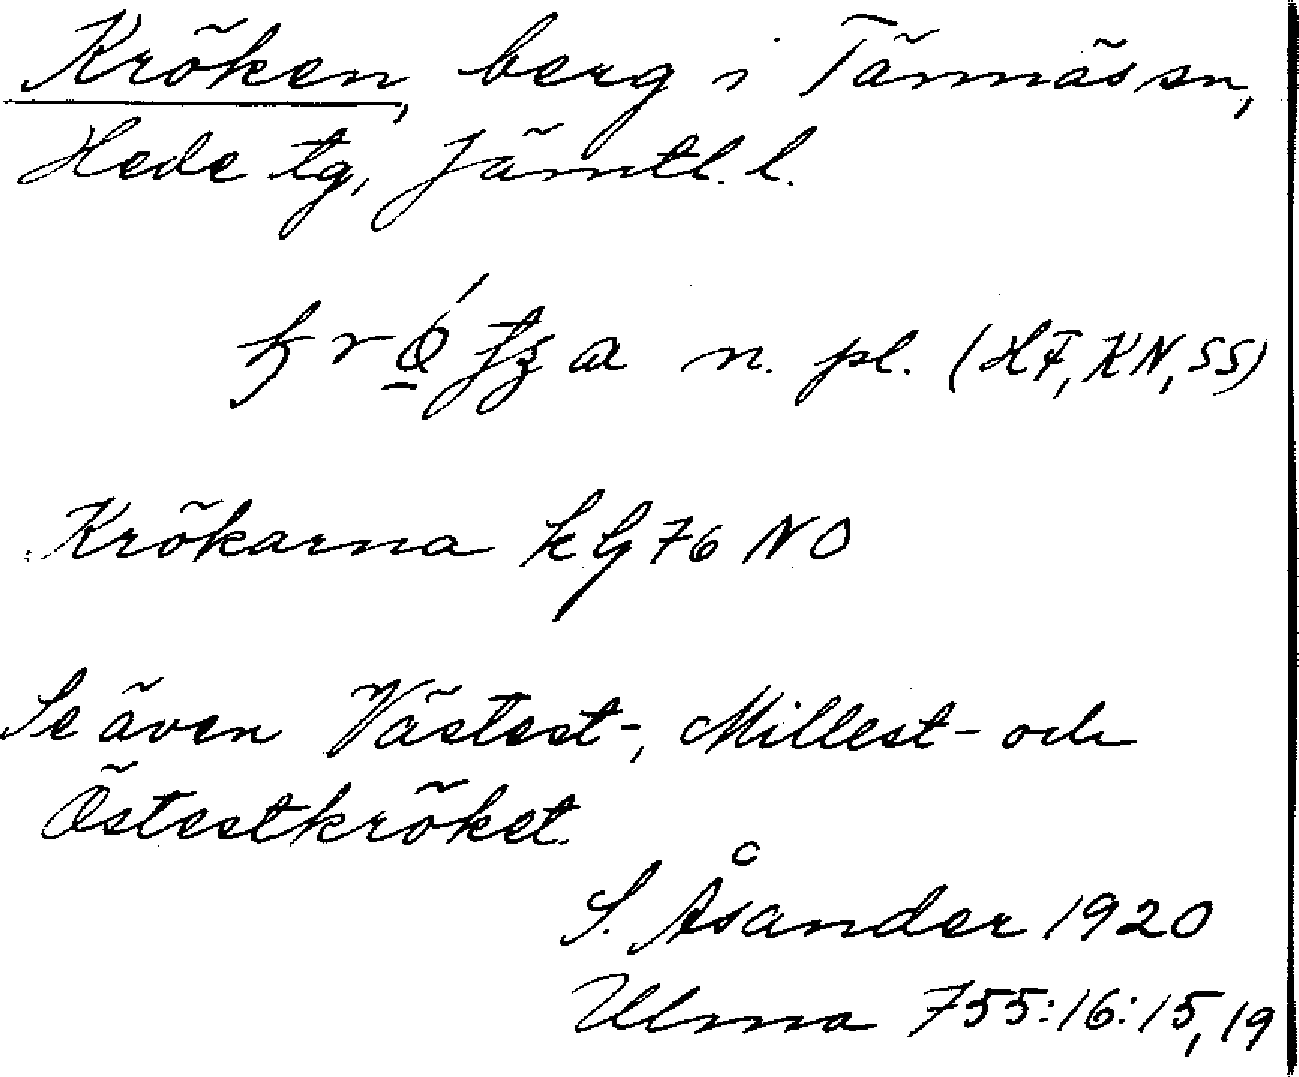 Kröken, berg i Tännäs sn,
Hede tg, Jämtl. l.
n. pl. (HF, KN, SS)
Krökarna kG 76 NO
Se även Västest-, Millest- och
Östestkröket.
S. Åsander 1920
Ulma 755:16:15, 19